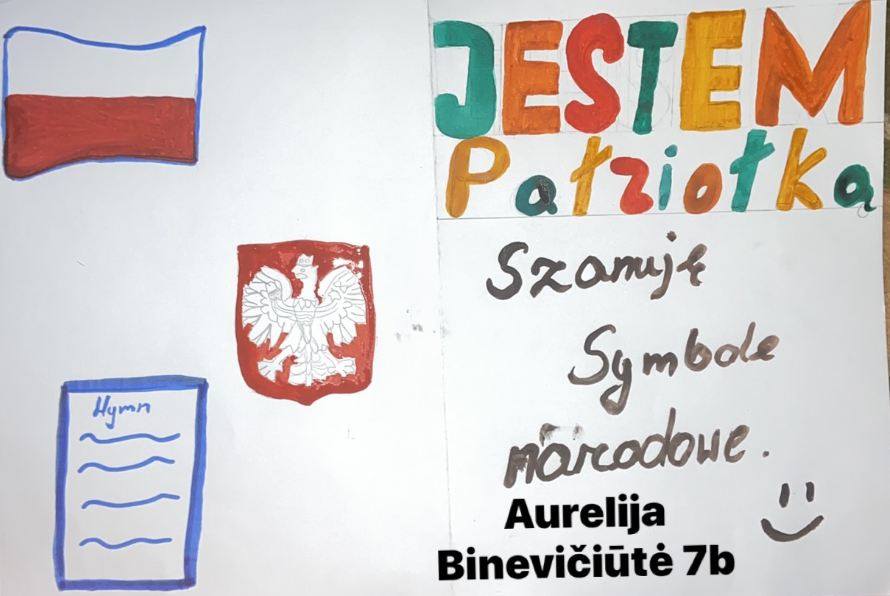 JESTEM
Patriotka
Szanuję
Symbole
narodowe.
Aurelija
Binevičiūtė 7b
Hymn